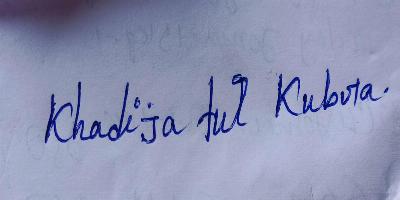 Khadija tul Kubra.